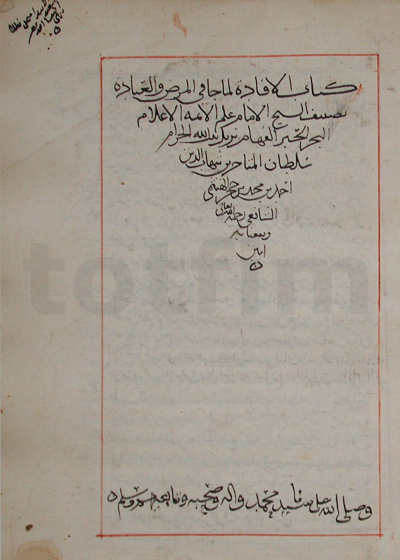 كتاب الافادة لما جا في المرض والعيادة
تصنيف الشيخ الامام علم الائمه الاعلام
البحر الحبر الفهام نزيل بلد الله الحرام
سلطان المتاخرين شهاب الدين
احمد بن محمد بن حجر الهيتمي
الشافعي رحمه الله تعالى
ونفعنا به
امين
وصلى الله على سيدنا محمد واله وصحبه وتابعيه وسلم
totfim